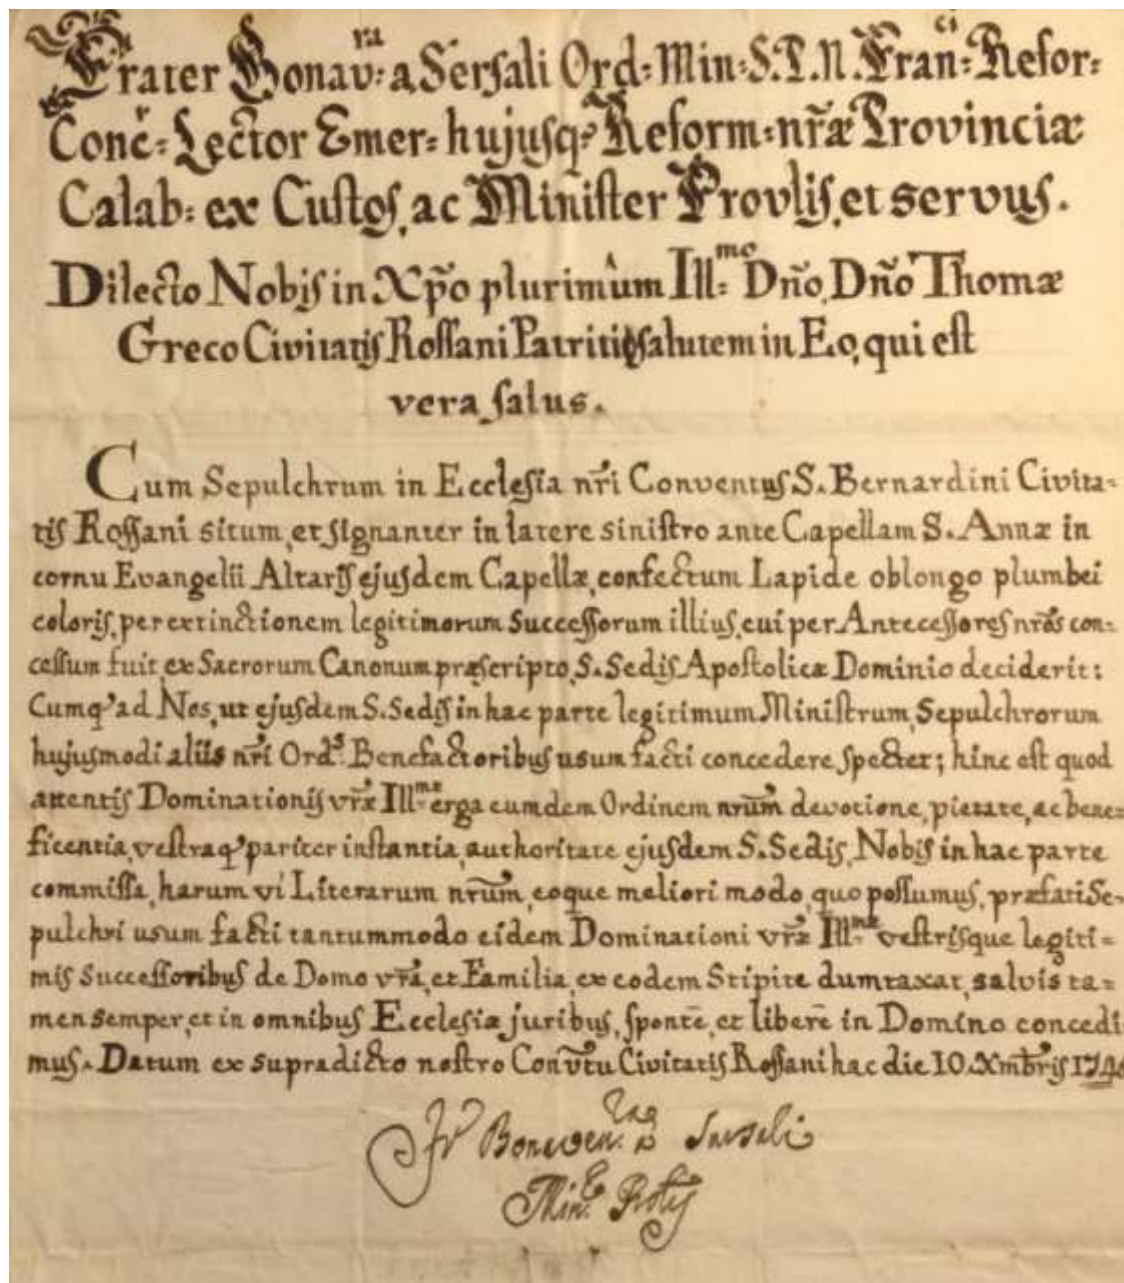 Frater Bonav:ra a Sersali Ord: Min: S.P.N. Fran:ci Refor:
Conc: Lector Emer: hujusq; Reform: nr̃æ Provinciæ
Calab: ex Custos, ac Minister Provlis, et servus.
Dilecto Nobis in Xp̃o plurimûm Ill:mo Dño, Dño Thomæ
Greco Civitatis Rossani Patritio salutem in Eo, qui est
vera salus.
Cum Sepulchrum in Ecclesia nr̃i Conventus S. Bernardini Civita-
tis Rossani situm, et signanter in latere sinistro ante Capellam S. Annæ in
cornu Evangelii Altaris ejusdem Capellæ, confectum Lapide oblongo plumbei
coloris, per extinctionem legitimorum Successorum illius, cui per Antecessores nr̃os con-
cessum fuit, ex Sacrorum Canonum præscripto, S. Sedis Apostolicæ Dominio deciderit:
Cumq; ad Nos, ut ejusdem S. Sedis in hac parte legitimum Ministrum, Sepulchrorum
hujusmodi aliis nr̃i Ord:s Benefactoribus usum facti concedere spectet; hinc est quod
attentis Dominationis vr̃æ Ill:mæ erga eumdem Ordinem nr̃um devotione, pietate, ac bene=
ficentia, vestraq; pariter instantia, authoritate ejusdem S. Sedis, Nobis in hac parte
commissa, harum vi Literarum nr̃um, eoque meliori modo, quo possumus, præfati Se-
pulchri usum facti tantummodo eidem Dominationi vr̃æ Ill:mæ vestrisque legiti=
mis Successoribus de Domo vr̃a, et Familia, ex eodem Stipite dumtaxat, salvis ta=
men semper, et in omnibus Ecclesiæ juribus, spontè, et liberè in Domino concedi
mus. Datum ex supradicto nostro Conṽtu Civitatis Rossani hac die 10. Xmbr̃is
Fr Bonaven:ra a Sersali
Min:r Prolis